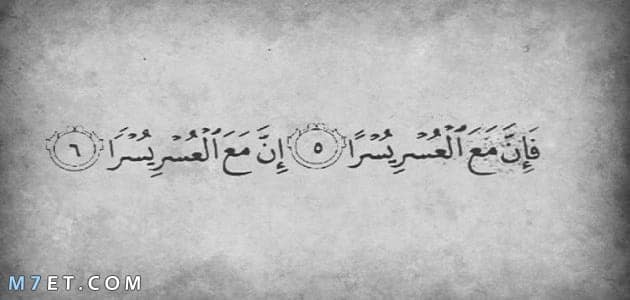 فَإِنَّ مَعَ ٱلْعُسْرِ يُسْرًا ٥ إِنَّ مَعَ ٱلْعُسْرِ يُسْرًا ٦
M7ET.COM